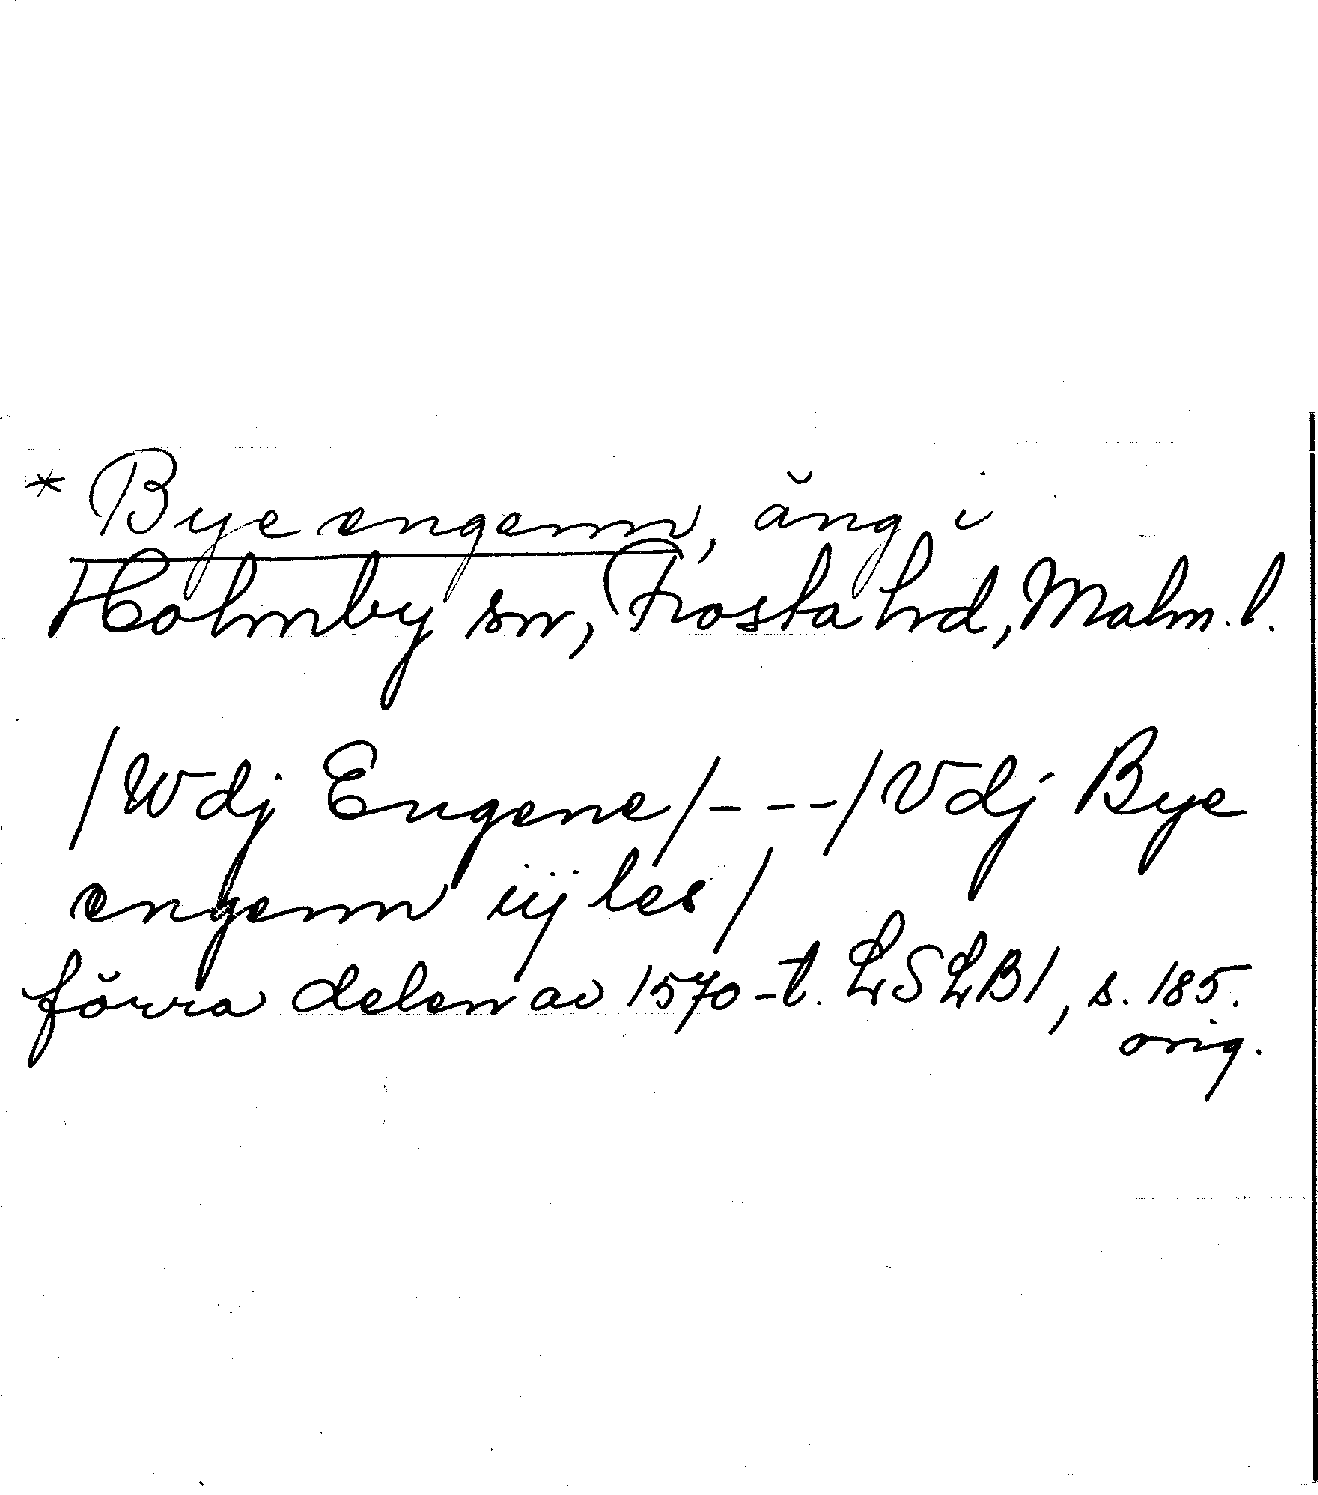 * Bye engenn, äng i
Holmby sn, Frosta hd, Malm. l.
/Wdj Engene/---/Vdj Bye
engenn iij les/
förra delen av 1570-t. LSLB1, s. 185.
orig.